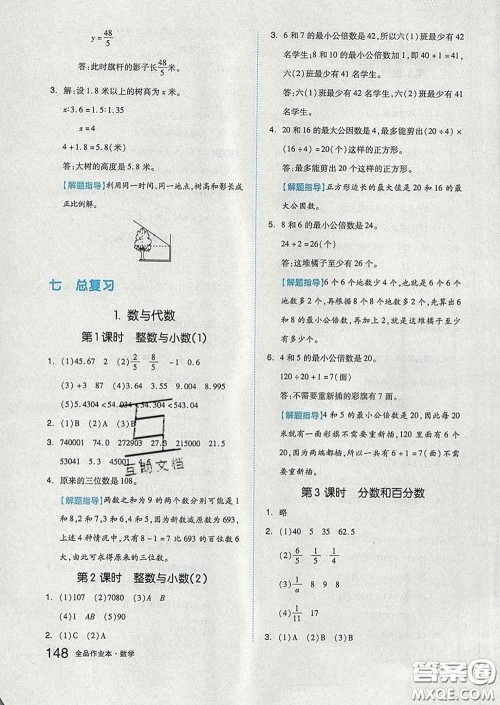 y=48/5
答:此时旗杆的影子长48/5米。
3. 解:设1.8米以上的树高为x米。
x∶3.6=1.5∶1.35
x=4
4+1.8=5.8(米)
答:大树的高度是5.8米。
【解题指导】利用同一时间、同一地点,树高和影长成
正比例解。
七 总复习
1. 数与代数
第1课时 整数与小数(1)
1. (1)45.67 2 (2)2/5 8/5 -1 0.6
(3)+3 4 (4)3.95 9.004 8.995
(5)5.4304<54.034<54.304<543.04
2. (1)A (2)B (3)A
3. 740001 23.74 2803 27.3 275000
53041 9.
4. 原来的三位数是108。
【解题指导】两数之和为9的两个数分别可能是1
和8,2和7,3和6,4和5,因为新数减原数为693,
上面四组数只有1和8符合新数比原数大693,
也就可以求得原来的三位数。
第2课时 整数与小数(2)
1. (1)107 (2)7080 (3)A B
2. (1)4 (3)1 AB (5)90
3. (1)C (2)A
148 全品作业本·数学
2. 6和7的最小公倍数是42,所以六(1)班最少有42
名学生;8和10的最小公倍数是40,即40+1=41,
六(2)班最少有41名学生。
答:六(1)班最少有42名学生,六(2)班最少有
41名学生。
4. 20和16的最大公因数是4,最多能剪出(20÷4)×
(16÷4)=20(个)这样的正方形。
答:最多能剪出20个这样的正方形。
【解题指导】正方形边长的最大值是20和16的最
大公因数。
3. 8和6的最小公倍数是24。
24+2=26(个)
答:这堆橘子至少有26个。
【解题指导】6个6个地数少4个,也就是6个6个
地数多2个,再根据8个8个地数多2个,先算出8
和6的最小公倍数是24,再加上2就是这堆橘子至
少有多少个。
4. 4和5的最小公倍数是20。
120÷20+1=7(面)
答:不需要重新插的彩旗有7面。
【解题指导】4和5的最小公倍数是20,所以每20
米不需要重新插,120里面有6个20,所以有6段,
因为两端都插,所以有6+1=7(面)彩旗不需要
重新插。
第3课时 分数和百分数
1. 略
2. (1)40 5 35 62.5
(2)6/5 1/5 1/6
(3)1/a 8 9 (4)1/15
3. (1)B (2)A (3)C (4)C
互朗文档
答案圈
MXQE.COM